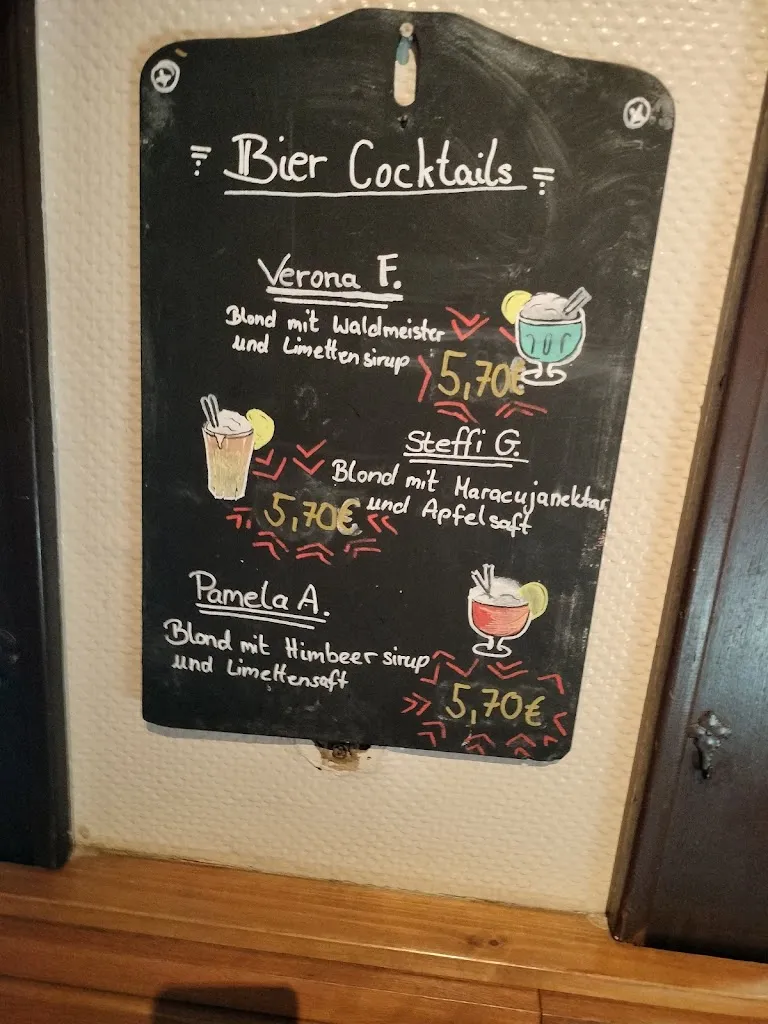 Bier Cocktails
Verona F.
Blond mit Waldmeister
und Limettensirup
5,70€
Steffi G.
Blond mit Maracujanektar
und Apfelsaft
5,70€
Pamela A.
Blond mit Himbeersirup
und Limettensaft
5,70€